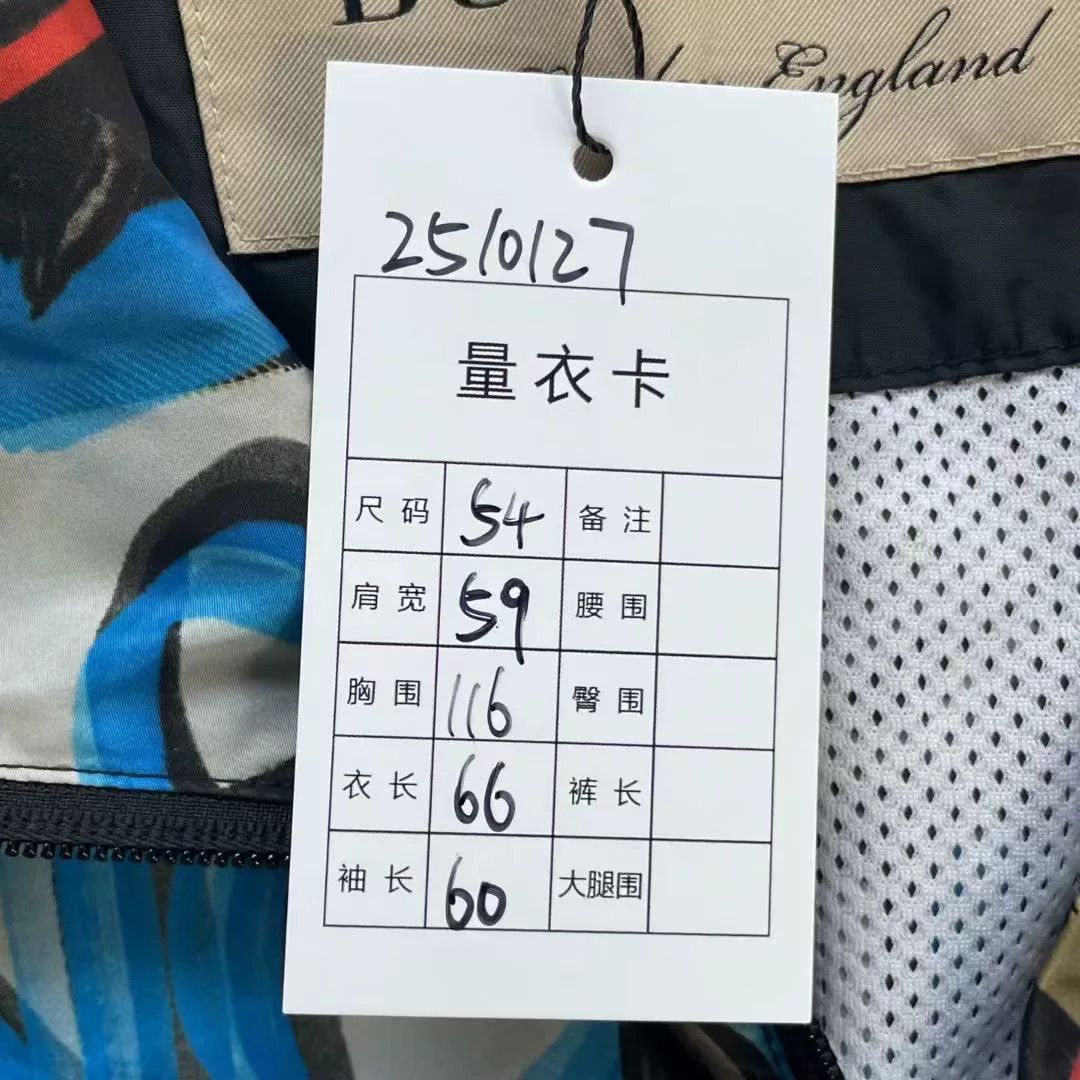 England
2510127
量衣卡
尺码 54 备注
肩宽 59 腰围
胸围 116 臀围
衣长 66 裤长
袖长 60 大腿围